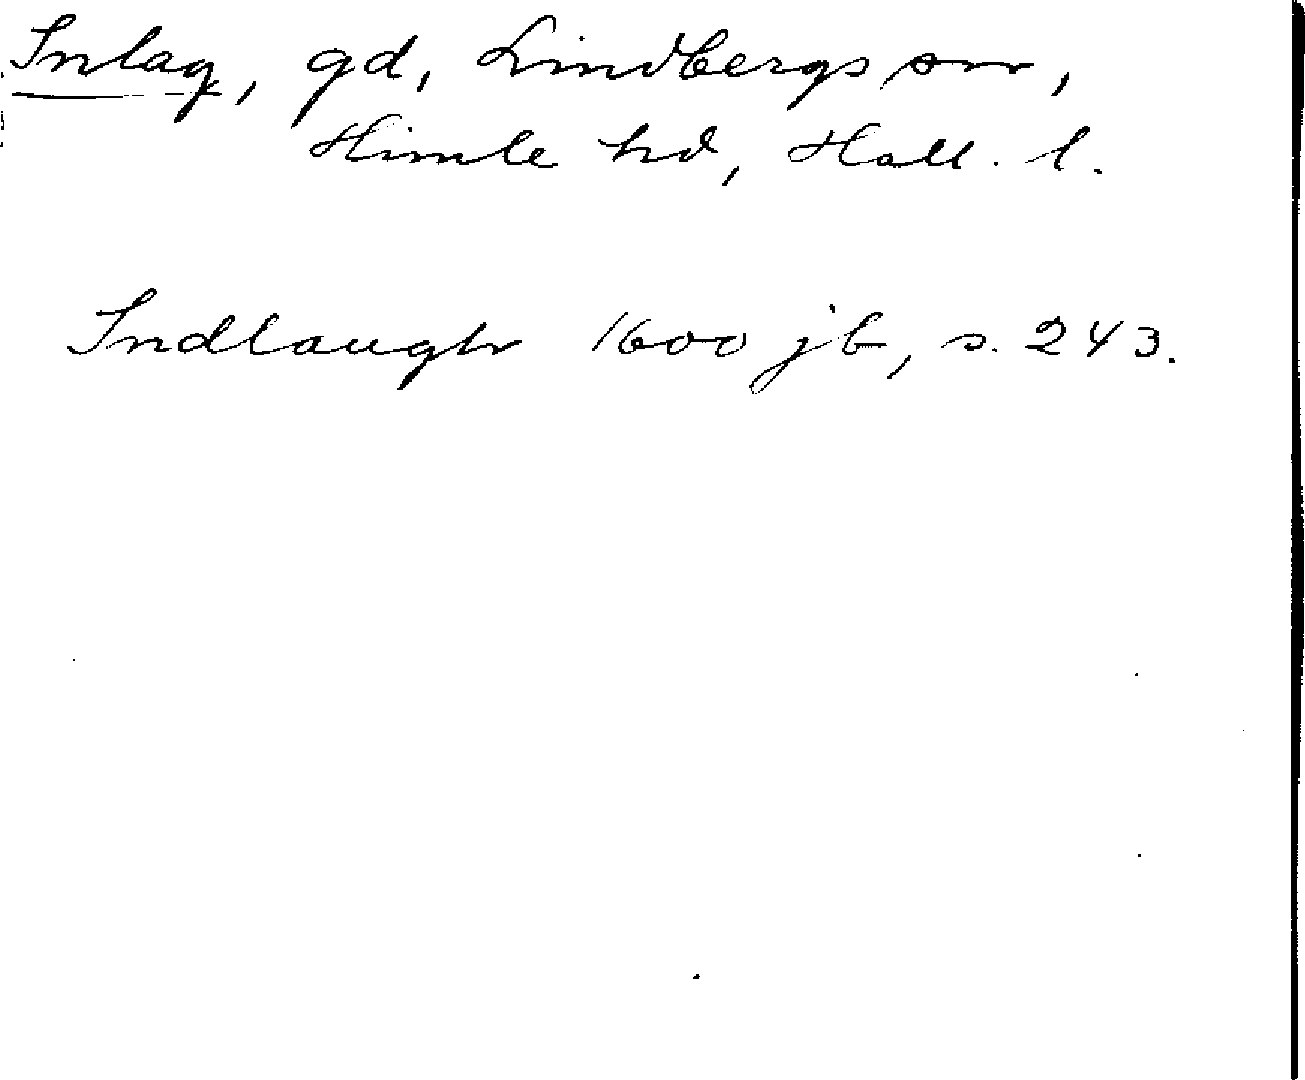 Inlag, gd, Lindbergs sn,
Himle hd, Hall. l.
Indlaugh 1600 jb, s. 243.